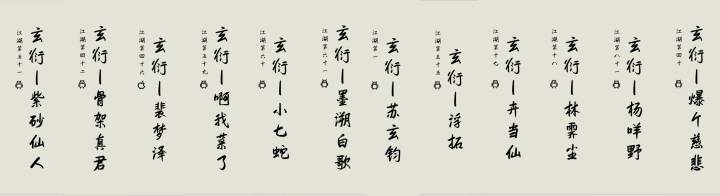 玄衍丨紫砂仙人
江湖第五十一
玄衍丨骨架真君
江湖第四十二
玄衍丨裴梦泽
江湖第四十六
玄衍丨啊我菜了
江湖第五十九
玄衍丨小七蛇
江湖第六十
玄衍丨墨溯白歌
江湖第六十一
玄衍丨苏玄钧
江湖第一
玄衍丨浮拓
江湖第五十五
玄衍丨卉当仙
江湖第十九
玄衍丨林霁尘
江湖第十八
玄衍丨杨咩野
江湖第八十一
玄衍丨爆个慈悲
江湖第四十